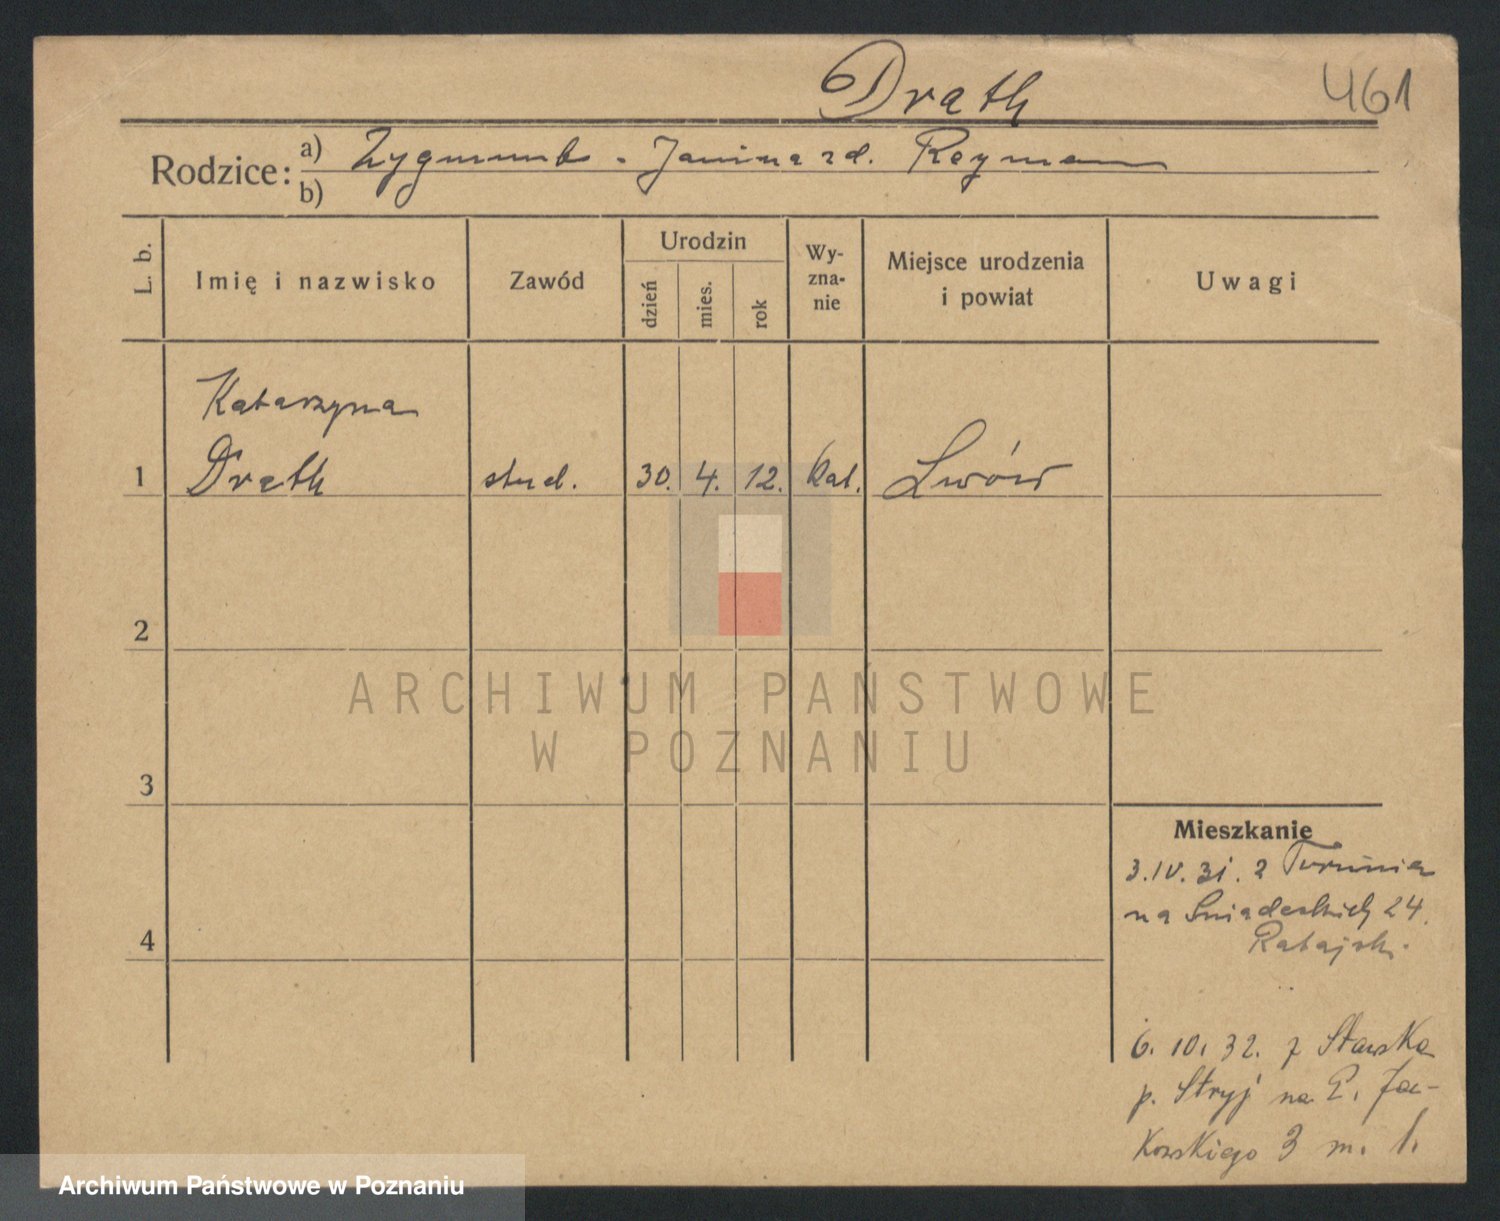 Drath
461
Rodzice: a) Zygmunt - Janina zd. Reyman
b)
L. b.
Imię i nazwisko
Zawód
Urodzin
dzień
mies.
rok
Wy-
zna-
nie
Miejsce urodzenia
i powiat
Uwagi
Katarzyna
1 Drath stud. 30. 4. 12. kat. Lwów
2
3
4
Mieszkanie
3.IV.31. z Torunia
na Śniadeckich 24.
Ratajsk.
6. 10. 32. z Stawska
p. Stryj na P. Ja-
kowskiego 3 m. 1.
ARCHIWUM PAŃSTWOWE
W POZNANIU
Archiwum Państwowe w Poznaniu